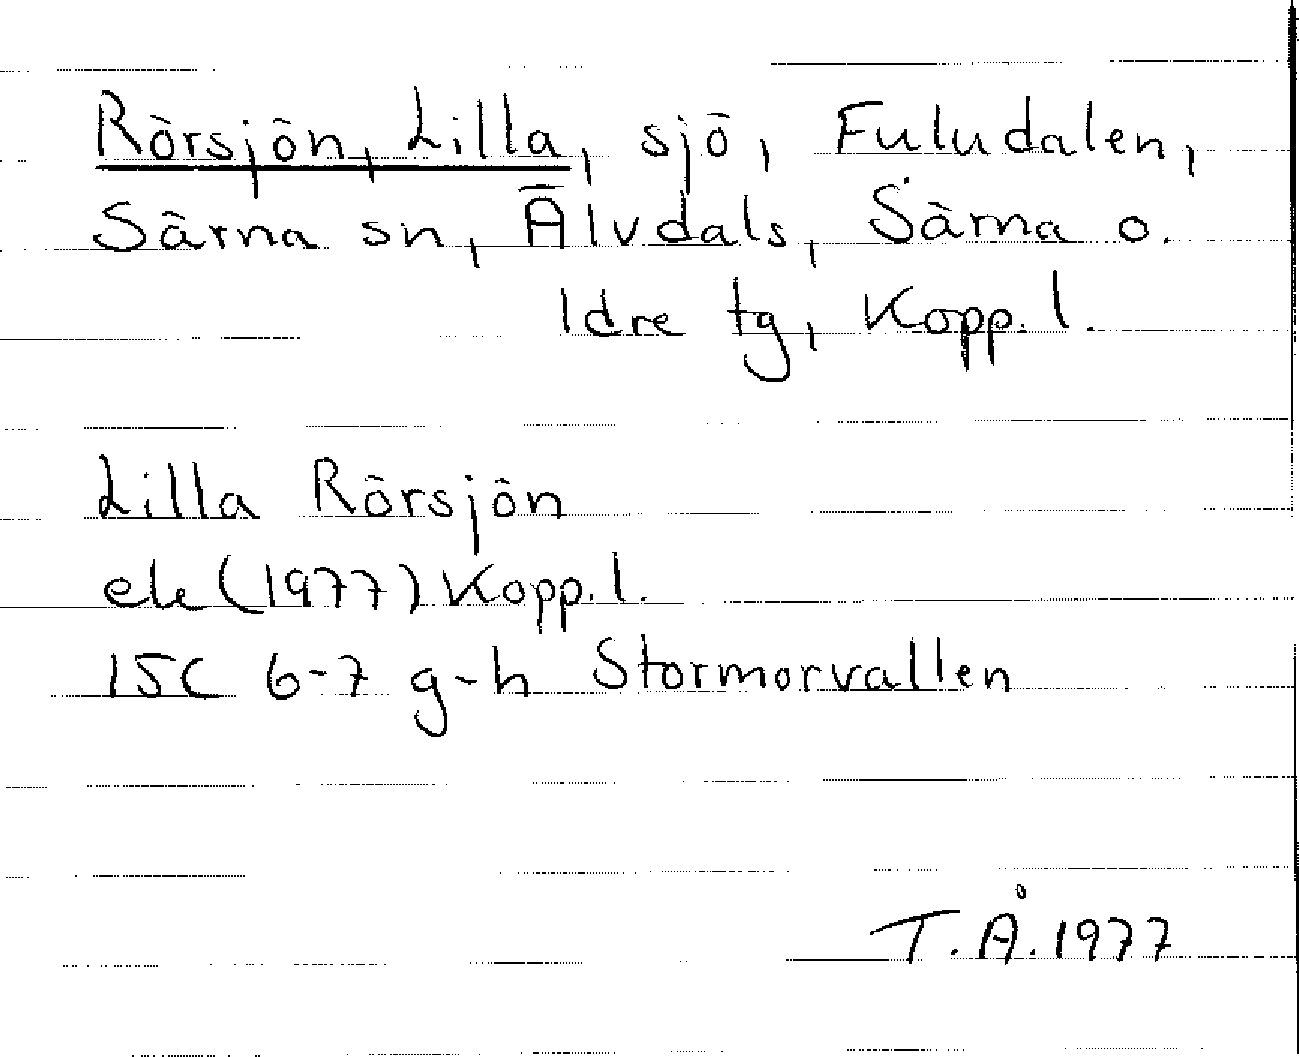 Rörsjön, Lilla, sjö, Fuludalen,
Särna sn, Älvdals, Särna o.
Idre tg, Kopp. l.
Lilla Rörsjön
ek (1977) Kopp. l.
15C 6-7 g-h Stormorvallen
T. Å. 1977